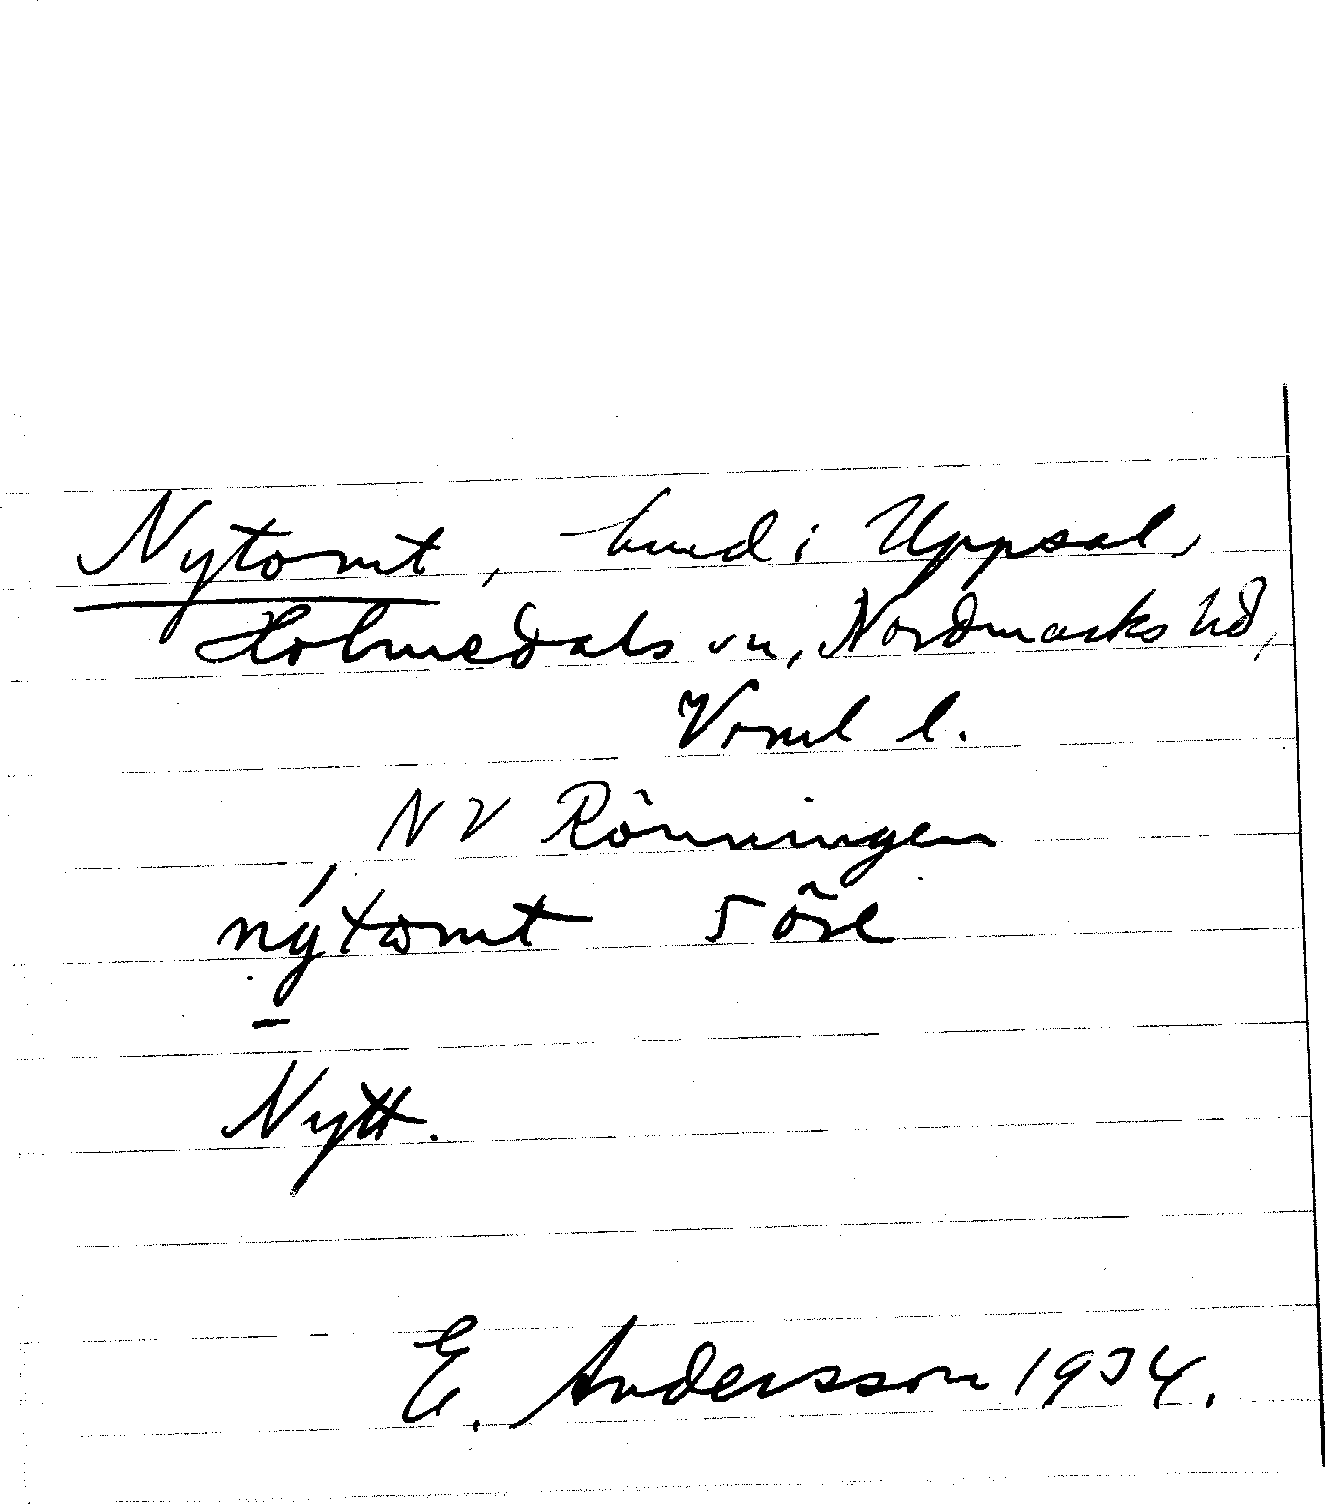 Nytomt, hmd i Uppsal,
Holmedals sn, Nordmarks hd,
Vrml l.
NV Rönningen
nýtomt 5 öre
Nytt.
E. Andersson 1934.